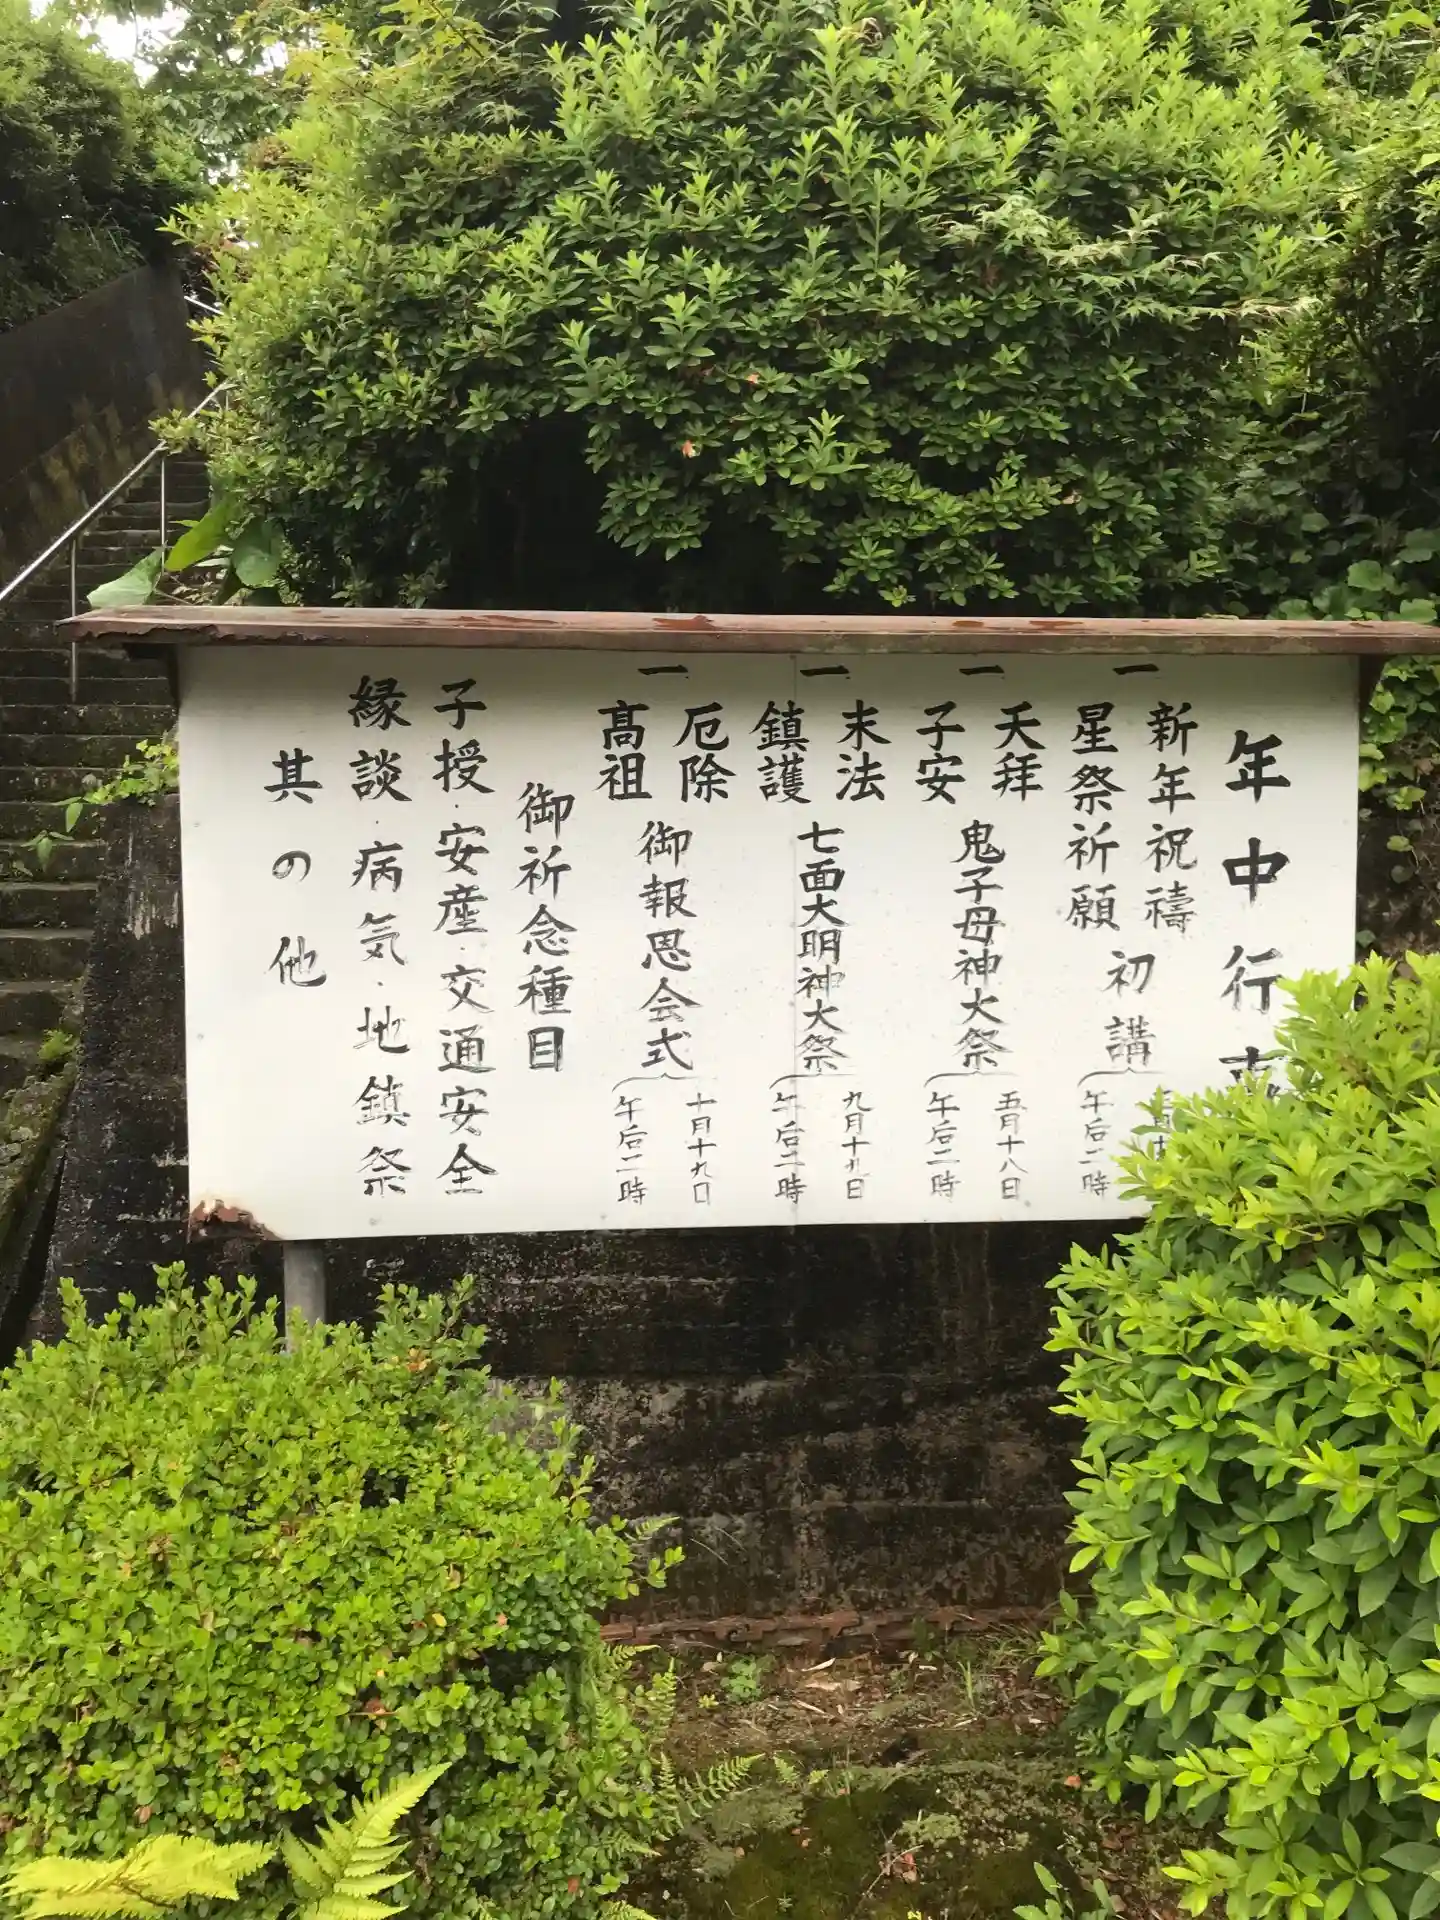 年中行事
一
新年祝禱
星祭祈願
初講
午后二時
一
天拝
子安
鬼子母神大祭
五月十八日
午后二時
一
末法
鎮護
七面大明神大祭
九月十九日
午后二時
一
厄除
高祖
御報恩会式
十月十九日
午后二時
御祈念種目
子授・安産・交通安全
縁談・病気・地鎮祭
其の他